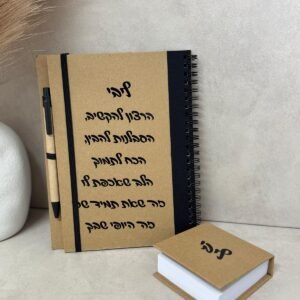 ליבי
הרצון להקשיב,
הסבלנות להבין,
הכח לתמוך
הלב שאכפת לו
כה שאת תמיד שם
כה היופי שבך
ליבי